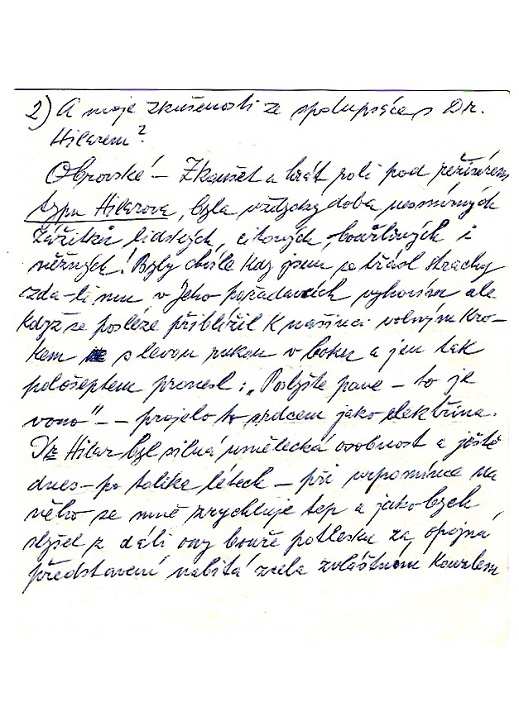 2) A moje zkušenosti ze spolupráce s Dr.
Hilarem?
Obrovské! – Zkoušet a hrát roli pod režisérem
typu Hilarova, byla vždycky doba nesmírných
zážitků lidských, citových, bouřlivých i
něžných! Byly chvíle kdy jsem se třásl strachy
zda-li mu v Jeho požadavcích vyhovím ale
když se posléze přiblížil k našinci volným kro-
kem s levou rukou v boku a jen tak
pološeptem pronesl: „Poslyšte pane – to je
vono" – – projelo to srdcem jako elektřina.
Dr Hilar byl silná umělecká osobnost a ještě
dnes – po tolika létech – při vzpomínce na
něho se mně zrychluje tep a jakobych
slyšel z dáli ony bouře potlesku za opojná
představení nabitá zcela zvláštním kouzlem